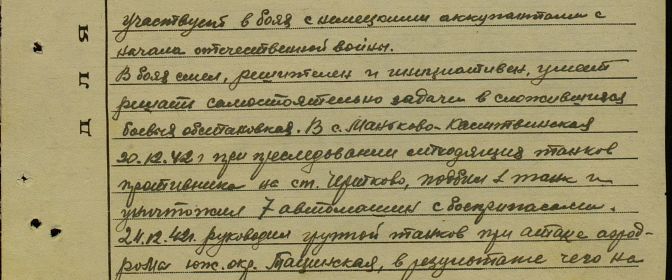 Д Л Я
участвует в боях с немецкими аккупантами с
начала отечественной войны.
В боях смел, решителен и инициативен, умеет
решать самостоятельно задачи в сложившихся
боевых обстановках. В с. Маньково-Калитвинская
20.12.42 г при преследовании отходящих танков
противника на ст. Чертково, подбил 1 танк и
уничтожил 7 автомашин с боеприпасами.
24.12.42 г. руководил группой танков при атаке аэрод-
рома юж. окр. Тацинская, в результате чего на